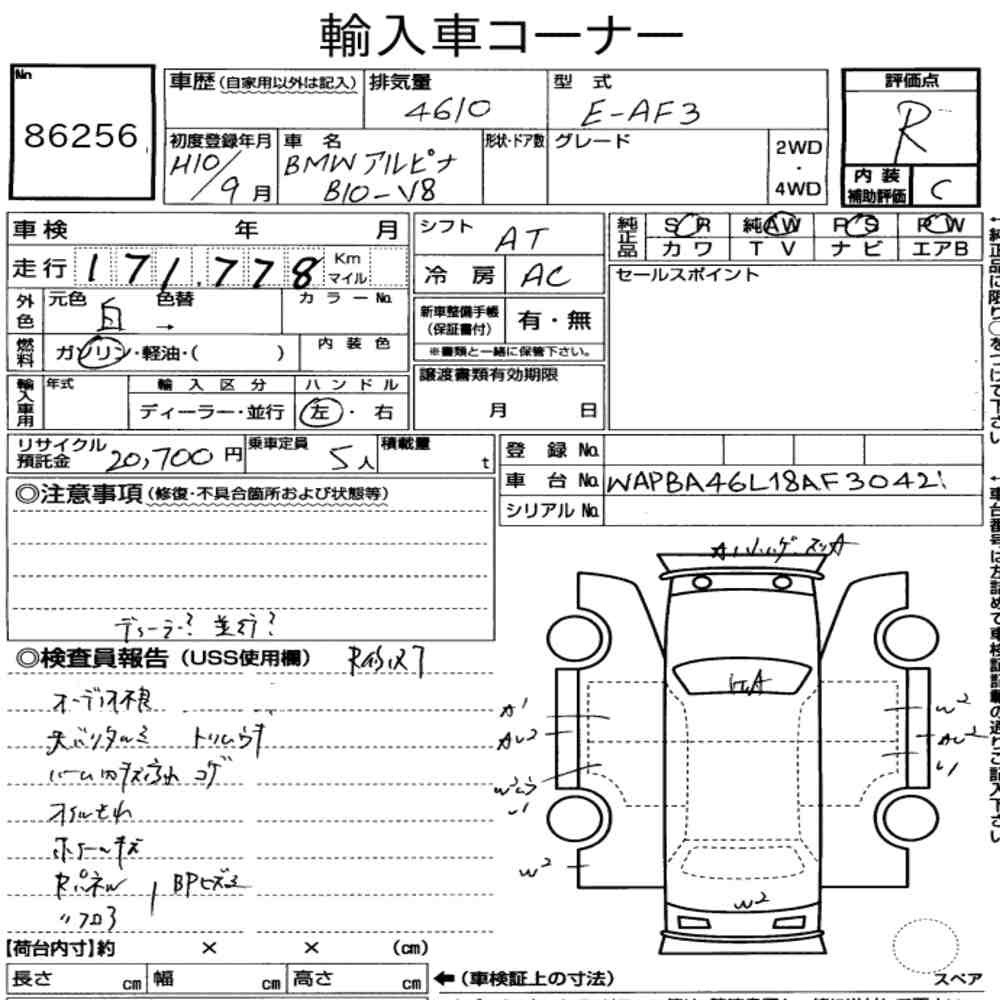 輸入車コーナー
No
86256
車歴（自家用以外は記入）
排気量
4610
型式
E-AF3
評価点
R
初度登録年月
H10/9月
車名
BMWアルピナ
B10-V8
形状・ドア数
グレード
2WD
・
4WD
内装
補助評価
C
車検 年 月
走行 171,778 Km
マイル
シフト
AT
冷房
AC
純正品
SR 純AW PS PW
カワ TV ナビ エアB
セールスポイント
外色
元色 色替
白 →
カラーNo.
燃料
ガソリン・軽油・( )
内装色
新車整備手帳
（保証書付）
有・無
※書類と一緒に保管下さい。
輸入車用
年式
輸入区分
ディーラー・並行
ハンドル
左・右
譲渡書類有効期限
月 日
リサイクル
預託金 20,700円
乗車定員
5人
積載量
t
登録No.
車台No. WAPBA46L18AF30421
シリアルNo.
◎注意事項（修復・不具合箇所および状態等）
ディーラー？ 並行？
◎検査員報告（USS使用欄）
オーディオ不良
トリムウキ
コゲ
オイルもれ
ホイールキズ
Rパネル
〃フロア
A1
W2
W2
W2
【荷台内寸】約 × × （cm）
長さ cm 幅 cm 高さ cm
←（車検証上の寸法）
スペア
←純正品に限り○をつけて下さい
←車台番号は左詰めで車検証記載の通りご記入下さい